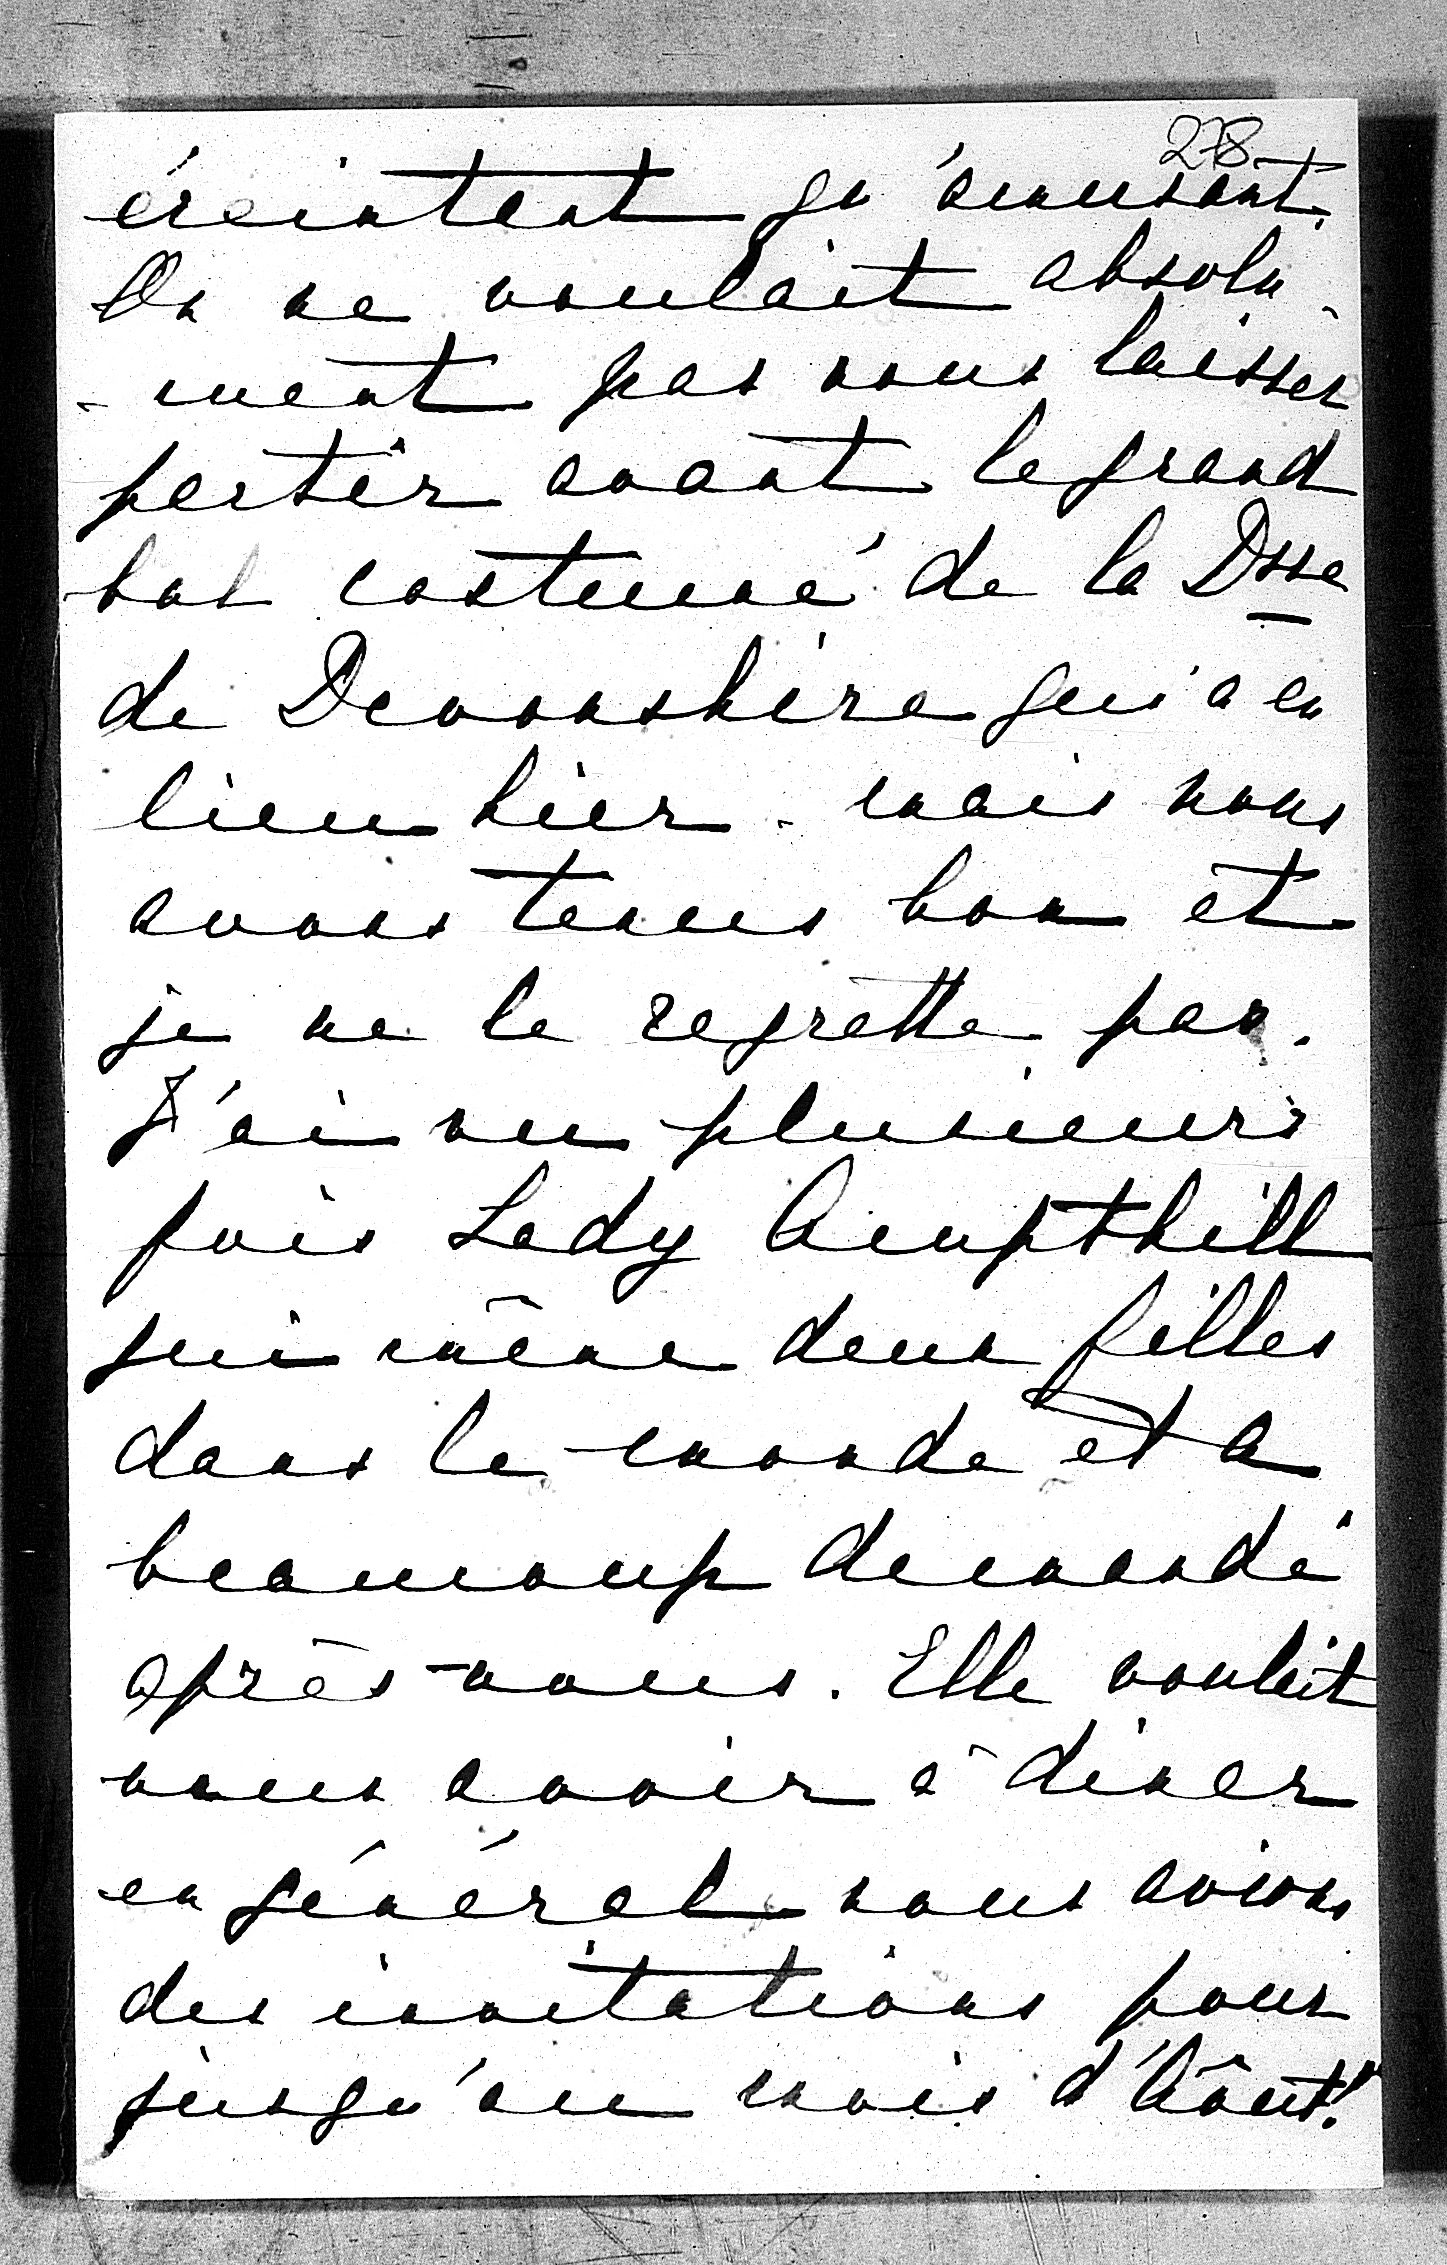 278
éreintent qu'amusant.
On ne voulait absolu-
-ment pas nous laisser
partir avant le grand
bal costumé de la Dsse
de Devonshire qui a eu
lieu hier - mais nous
avons tenus bon et
je ne le regrette pas.
J'ai vu plusieurs
fois Lady Ampthill
qui mène deux filles
dans le monde et a
beaucoup demandé
après vous. Elle voulait
nous avoir à diner
en général nous avions
des invitations pour
jusqu'au mois d'Août!